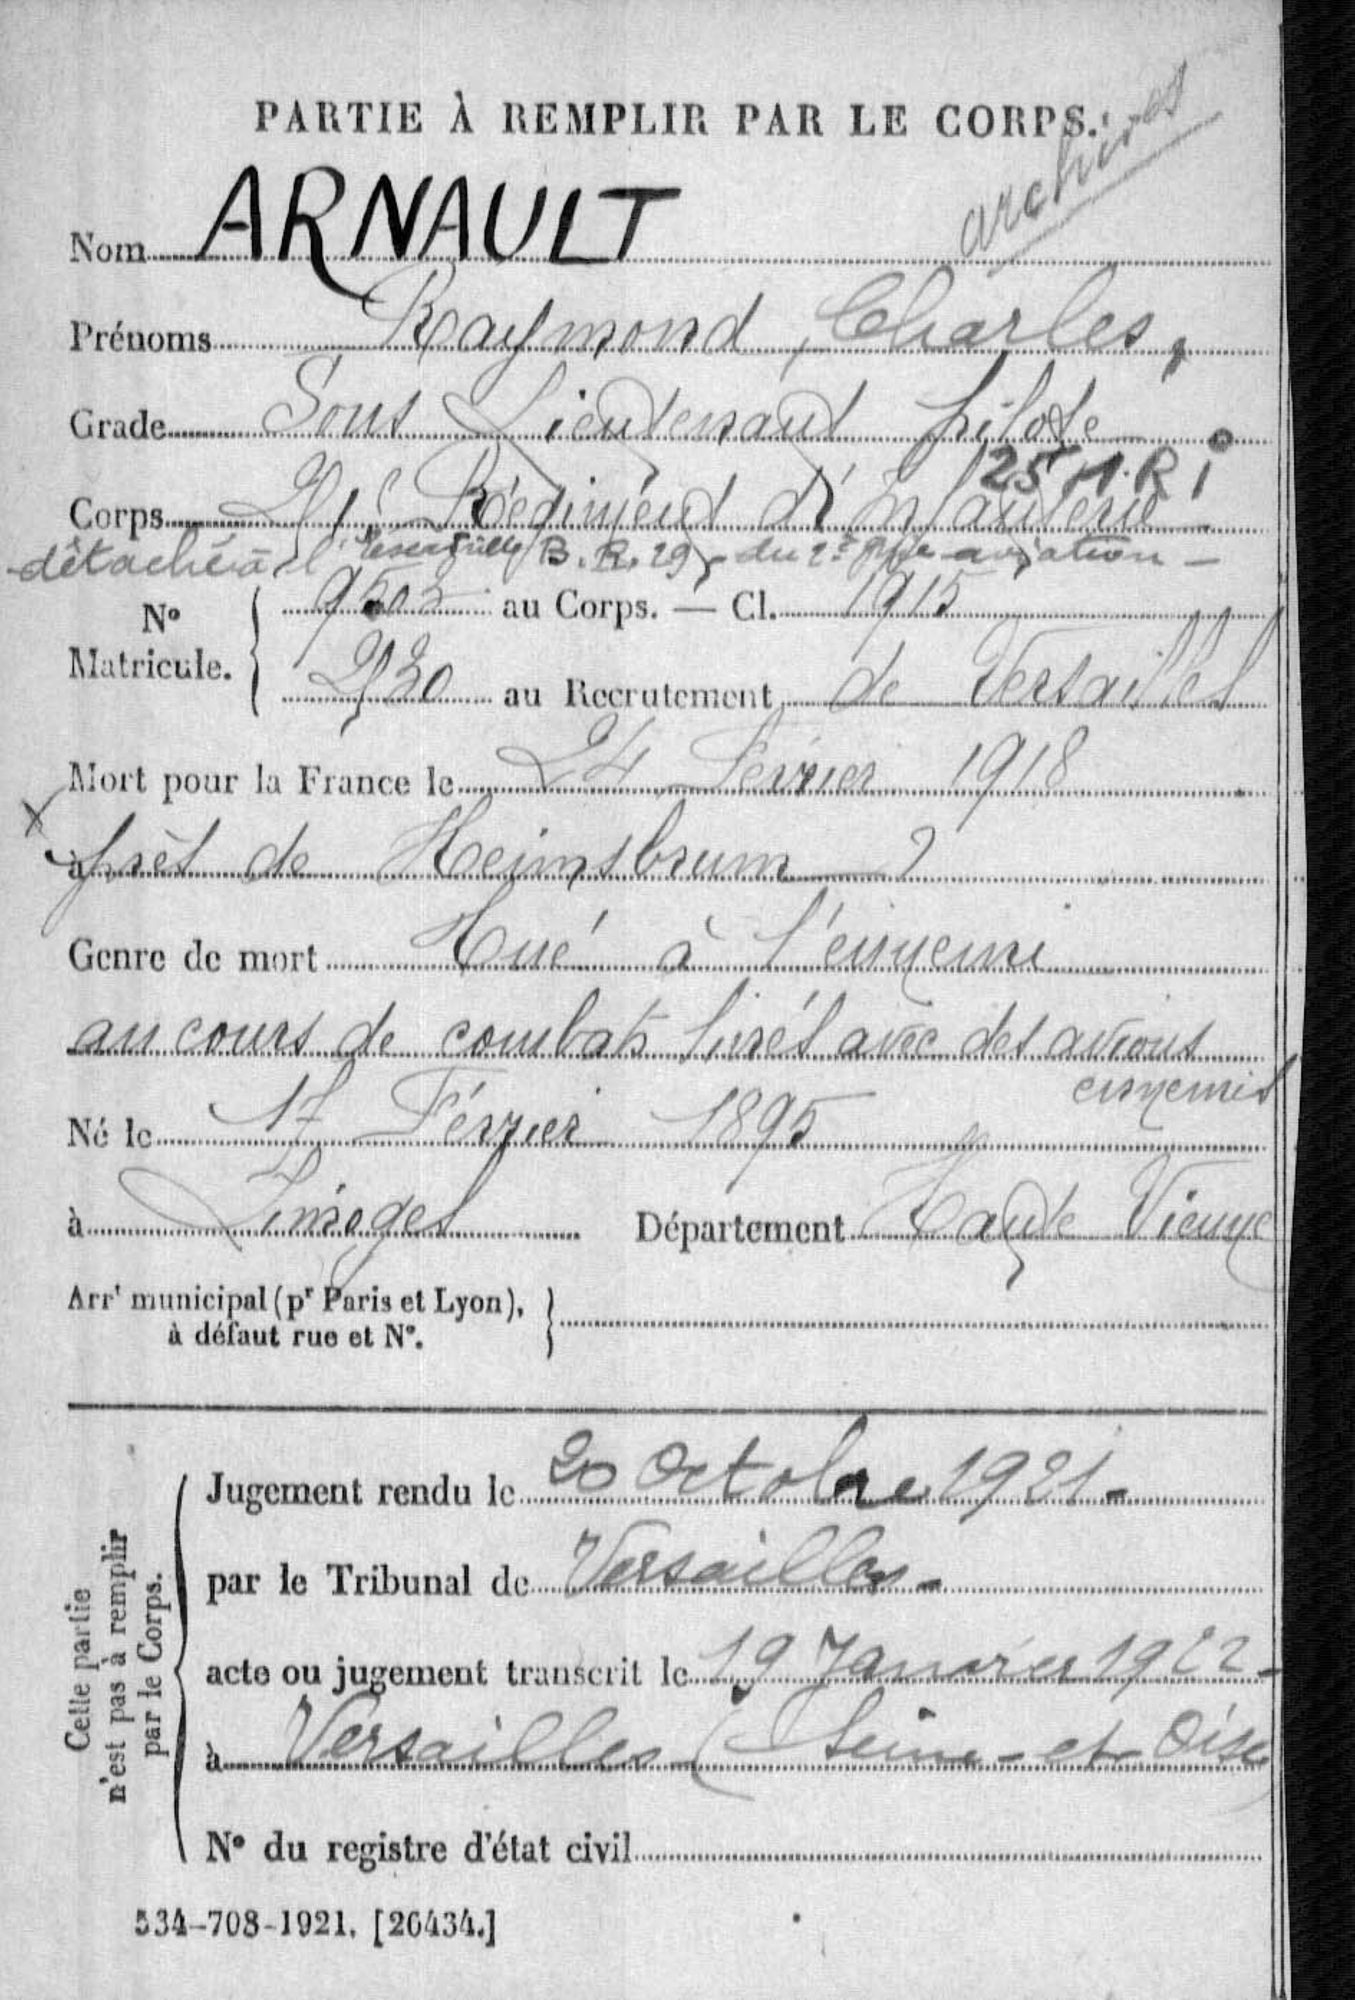 PARTIE À REMPLIR PAR LE CORPS.
archives
Nom ARNAULT
Prénoms Raymond, Charles,
Grade Sous Lieutenant pilote
25 M. R I
Corps Régiment d'Infanterie
détaché à l'escadrille B. R. 29 du 2e aviation —
No Matricule. { 9502 au Corps. — Cl. 1915
au Recrutement de Versailles
Mort pour la France le 24 Février 1918
x à près de Heimsbrum ?
Genre de mort Tué à l'ennemi
au cours de combats livrés avec des avions
ennemis
Né le 17 Février 1895
à Limoges Département Haute Vienne
Arrt municipal (pr Paris et Lyon), }
à défaut rue et No.
Cette partie
n'est pas à remplir
par le Corps.
Jugement rendu le 20 Octobre 1921 -
par le Tribunal de Versailles -
acte ou jugement transcrit le 19 Janvier 1922 -
à Versailles (Seine-et-Oise)
No du registre d'état civil
534-708-1921. [26434.]